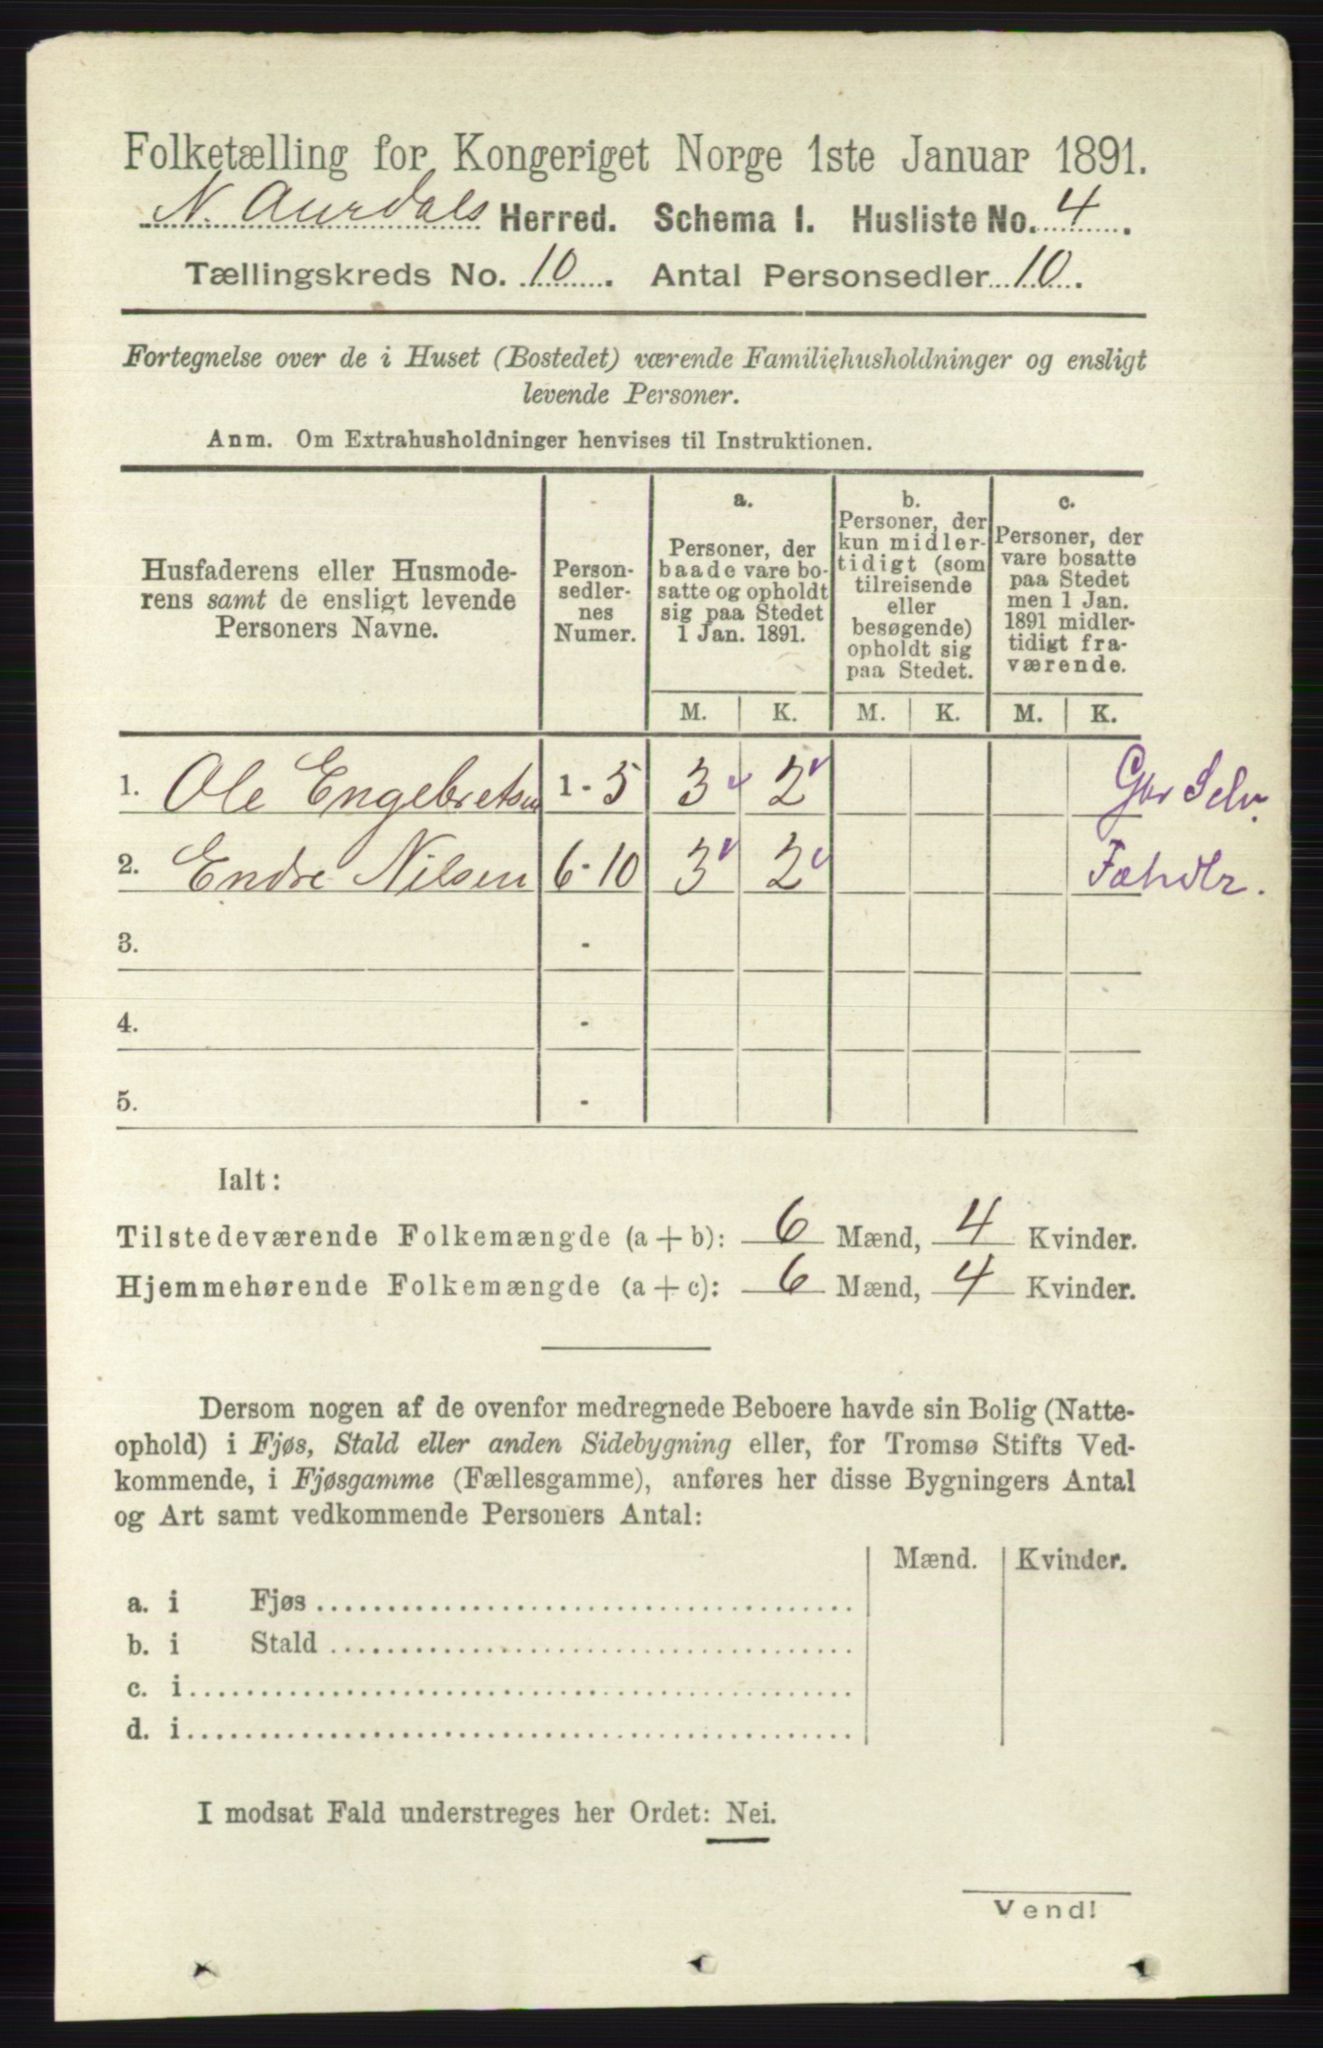 Folketælling for Kongeriget Norge 1ste Januar 1891.
N. Aurdals Herred. Schema I. Husliste No. 4.
Tællingskreds No. 10. Antal Personsedler 10.
Fortegnelse over de i Huset (Bostedet) værende Familiehusholdninger og ensligt
levende Personer.
Anm. Om Extrahusholdninger henvises til Instruktionen.
Husfaderens eller Husmode-
rens samt de ensligt levende
Personers Navne.
Person-
sedler-
nes
Numer.
a.
Personer, der
baade vare bo-
satte og opholdt
sig paa Stedet
1 Jan. 1891.
b.
Personer, der
kun midler-
tidigt (som
tilreisende
eller
besøgende)
opholdt sig
paa Stedet.
c.
Personer, der
vare bosatte
paa Stedet
men 1 Jan.
1891 midler-
tidigt fra-
værende.
M. K. M. K. M. K.
1. Ole Engebretsen 1 - 5 3 2 Gbr Selv.
2. Endre Nilsen 6 - 10 3 2
3. -
4. -
5. -
Ialt:
Tilstedeværende Folkemængde (a + b): 6 Mænd, 4 Kvinder.
Hjemmehørende Folkemængde (a + c): 6 Mænd, 4 Kvinder.
Dersom nogen af de ovenfor medregnede Beboere havde sin Bolig (Natte-
ophold) i Fjøs, Stald eller anden Sidebygning eller, for Tromsø Stifts Ved-
kommende, i Fjøsgamme (Fællesgamme), anføres her disse Bygningers Antal
og Art samt vedkommende Personers Antal:
Mænd. Kvinder.
a. i Fjøs
b. i Stald
c. i
d. i
I modsat Fald understreges her Ordet: Nei.
Vend!